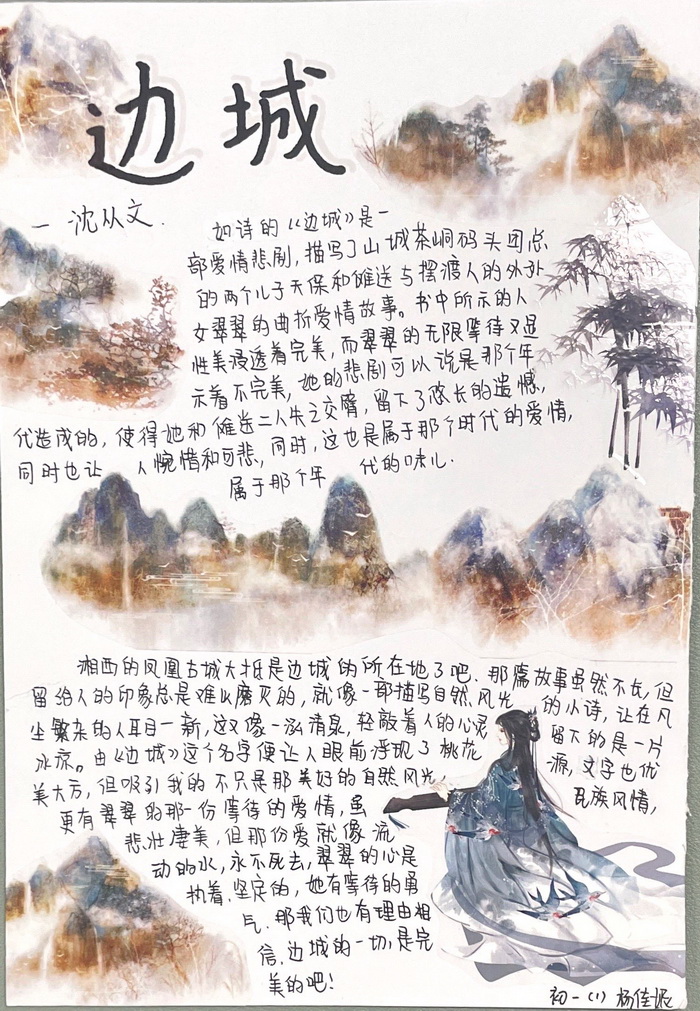 边城
一 沈从文.
如诗的《边城》是一
部爱情悲剧,描写了山城茶峒码头团总
的两个儿子天保和傩送与摆渡人的外孙
女翠翠的曲折爱情故事。书中所示的人
性美浸透着完美,而翠翠的无限等待又显
示着不完美,她的悲剧可以说是那个年
代造成的,使得她和傩送二人失之交臂,留下了悠长的遗憾,
同时也让人惋惜和可悲,同时,这也是属于那个时代的爱情,
属于那个年代的味儿.
湘西的凤凰古城大抵是边城的所在地了吧.那篇故事虽然不长,但
留给人的印象总是难以磨灭的,就像一部描写自然风光的小诗,让在凡
尘繁杂的人耳目一新,这又像一泓清泉,轻敲着人的心灵留下的是一片
冰凉。由《边城》这个名字便让人眼前浮现了桃花源,文字也优
美大方,但吸引我的不只是那美好的自然风光,民族风情,
更有翠翠的那一份等待的爱情,虽
悲壮凄美,但那份爱就像流
动的水,永不死去,翠翠的心是
执着.坚定的,她有等待的勇
气.那我们也有理由相
信.边城的一切,是完
美的吧!
初一(1) 杨佳